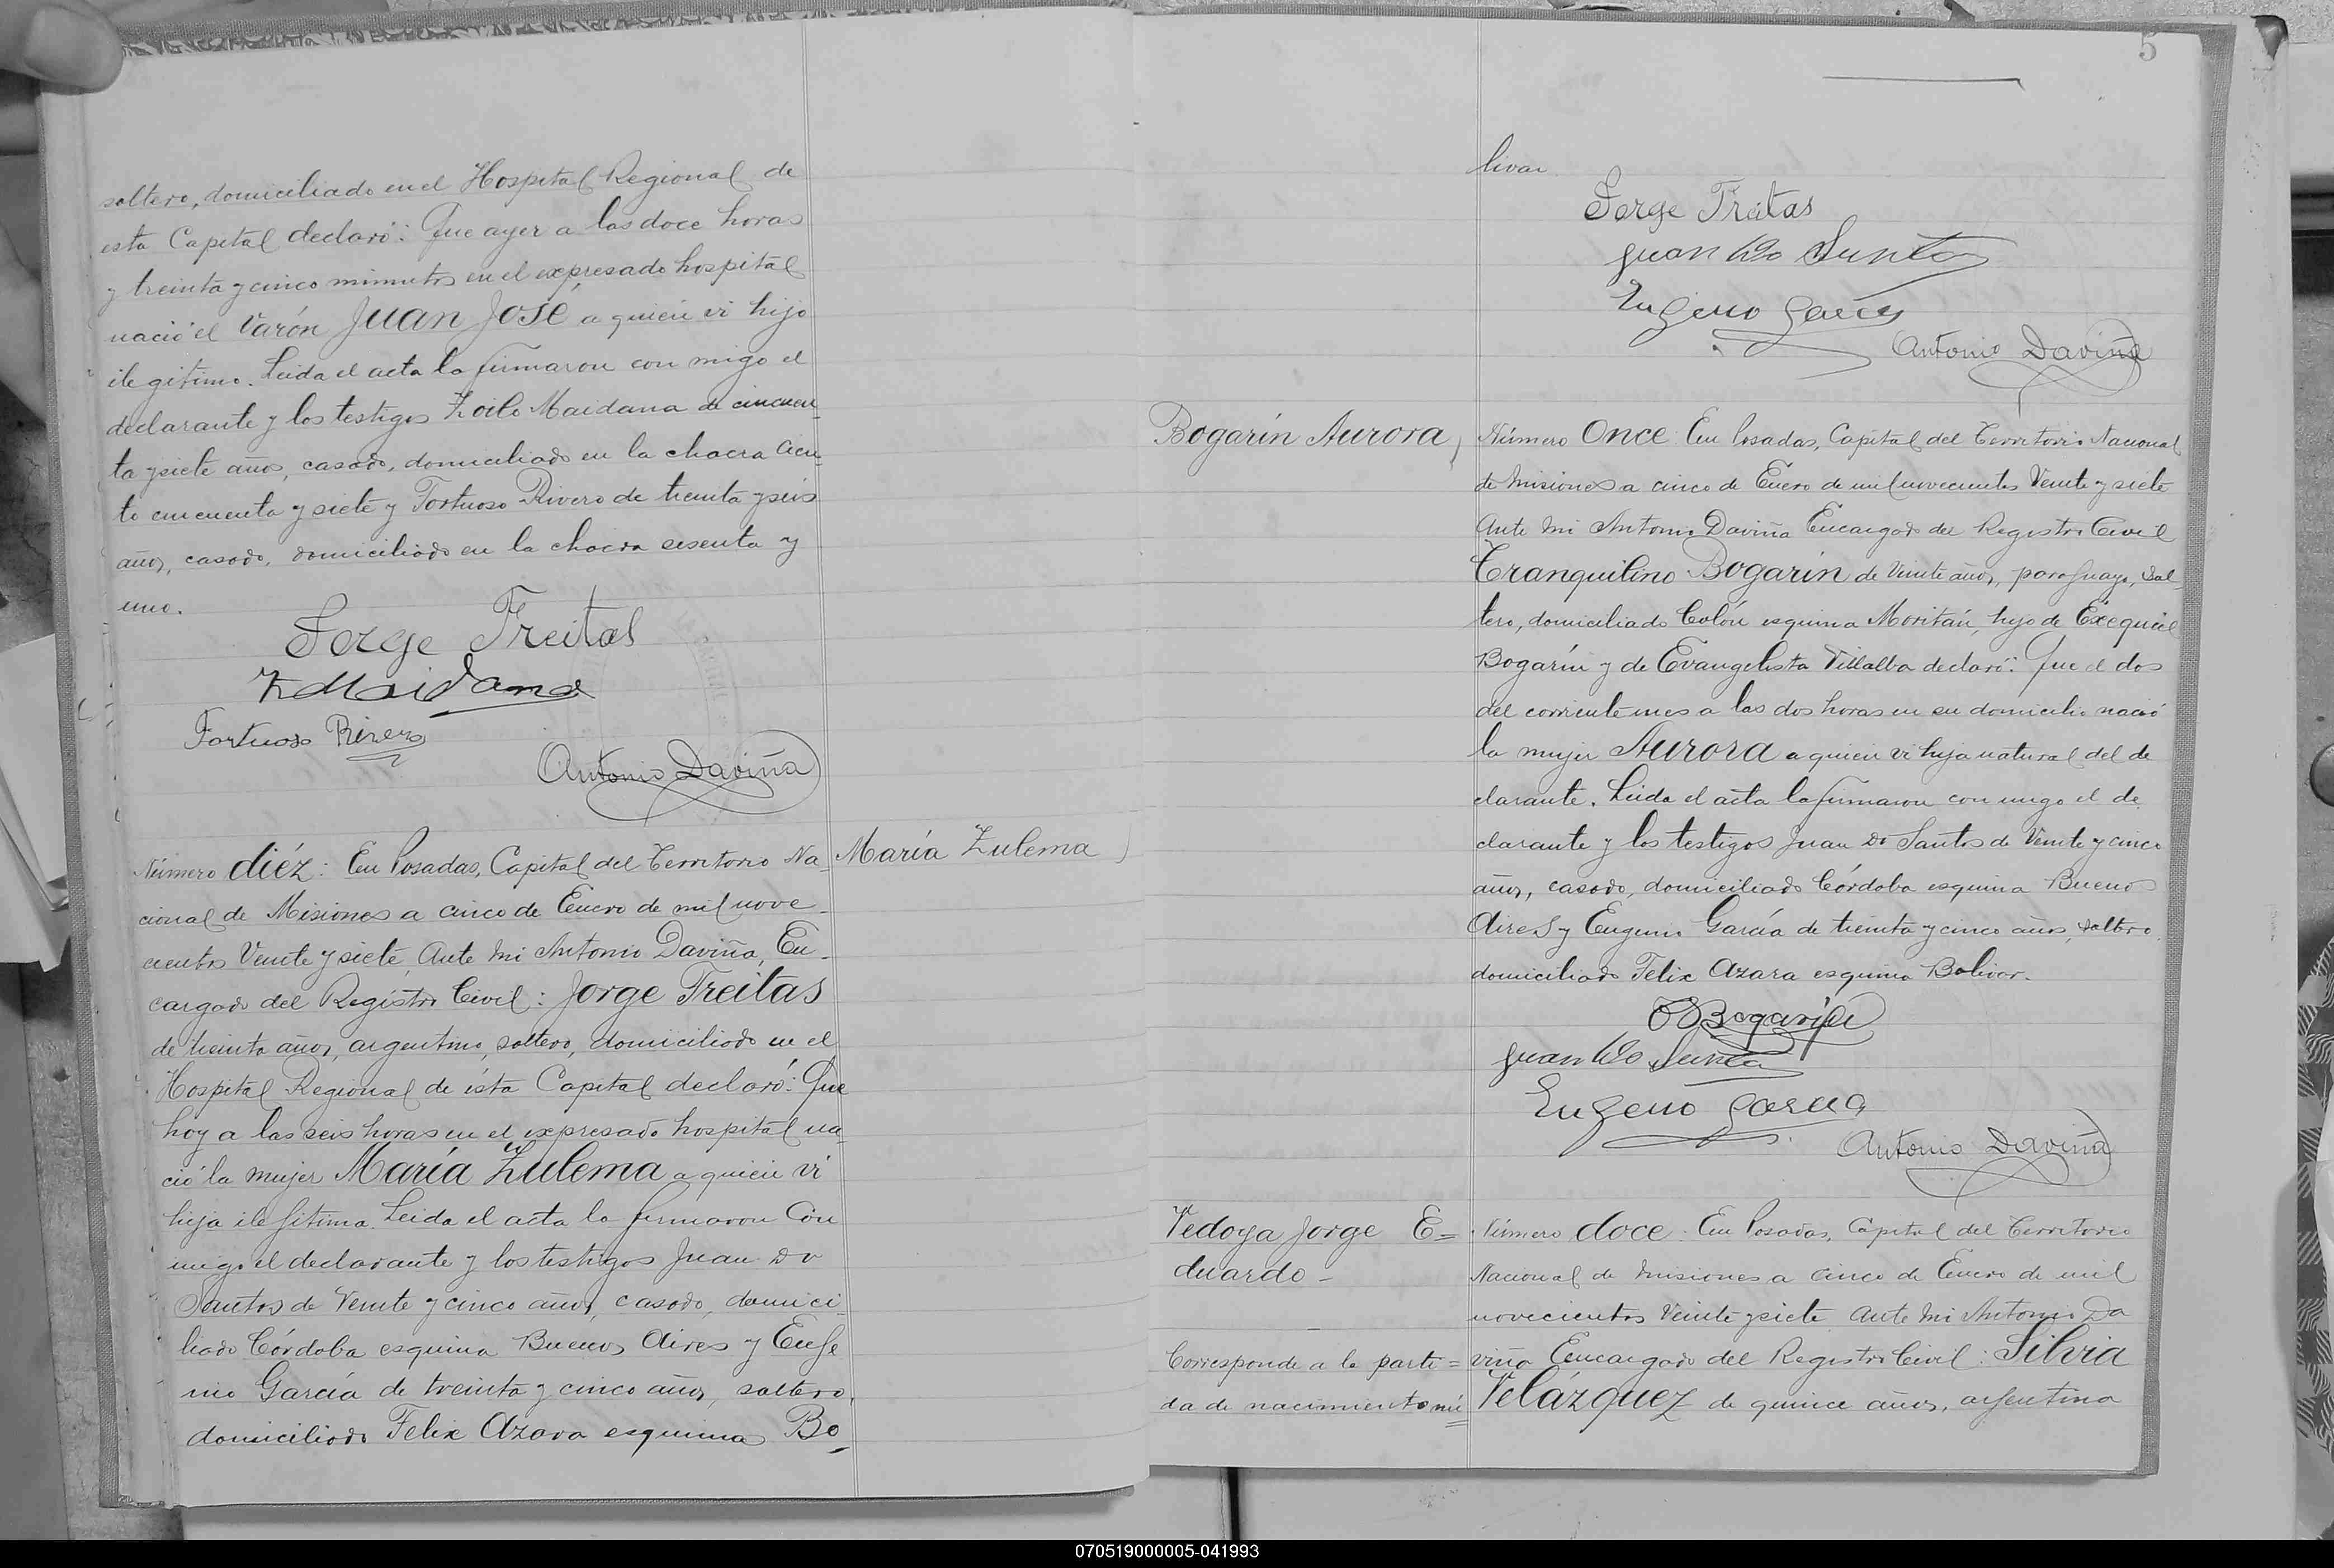 soltero, domiciliado en el Hospital Regional de
esta Capital declaró: Que ayer a las doce horas
y treinta y cinco minutos en el expresado hospital
nació el varón Juan José, a quien vi hijo
ilegitimo. Leida el acta la firmaron con migo el
declarante y los testigos Zoilo Maidana de cincuen_
ta y siete años, casado, domiciliado en la chacra cien_
to cincuenta y siete y Fortuoso Rivero de treinta y seis
años, casado, domiciliado en la chacra sesenta y
uno.
Jorge Freitas
Z Maidana
Fortuoso Rivero
Antonio Daviña
María Zulema
Número diéz: En Posadas, Capital del Territorio Na_
cional de Misiones a cinco de Enero de mil nove_
cientos Veinte y siete, Ante mi Antonio Daviña, En_
cargado del Registro Civil: Jorge Freitas
de treinta años, argentino, soltero, domiciliado en el
Hospital Regional de ésta Capital declaró: Que
hoy a las seis horas en el expresado hospital na_
ció la mujer María Zulema a quien vi
hija ilegitima. Leida el acta la firmaron Con
migo el declarante y los testigos Juan Do
Santos de Veinte y cinco años, casado, domici_
liado Córdoba esquina Buenos Aires y Euge
nio García de treinta y cinco años, soltero,
domiciliado Felix Azara esquina Bo_
5
livar
Jorge Freitas
Juan Do Santos
Eugenio García
Antonio Daviña
Bogarín Aurora
Número Once: En Posadas, Capital del Territorio Nacional
de Misiones a cinco de Enero de mil novecientos Veinte y siete
Ante mi Antonio Daviña Encargado del Registro Civil
Tranquilino Bogarín de Veinte años, paraguayo, sol_
tero, domiciliado Colón esquina Moritán, hijo de Exequiel
Bogarín y de Evangelista Villalba declaró: Que el dos
del corriente mes a las dos horas en su domicilio nació
la mujer Aurora a quien vi hija natural del de
clarante. Leida el acta la firmaron con migo el de
clarante y los testigos Juan Do Santos de Veinte y cinco
años, casado, domiciliado Córdoba esquina Buenos
Aires y Eugenio García de treinta y cinco años, soltero,
domiciliado Felix Azara esquina Bolivar.
T Bogarín
Juan Do Santos
Eugenio Garcia
Antonio Daviña
Vedoya Jorge E=
duardo -
Corresponde a la parti=
da de nacimiento nú=
Número doce: En Posadas, Capital del Territorio
Nacional de Misiones a cinco de Enero de mil
novecientos Veinte y siete Ante mi Antonio Da
viña Encargado del Registro Civil: Silvia
Velázquez de quince años, argentina
070519000005-041993